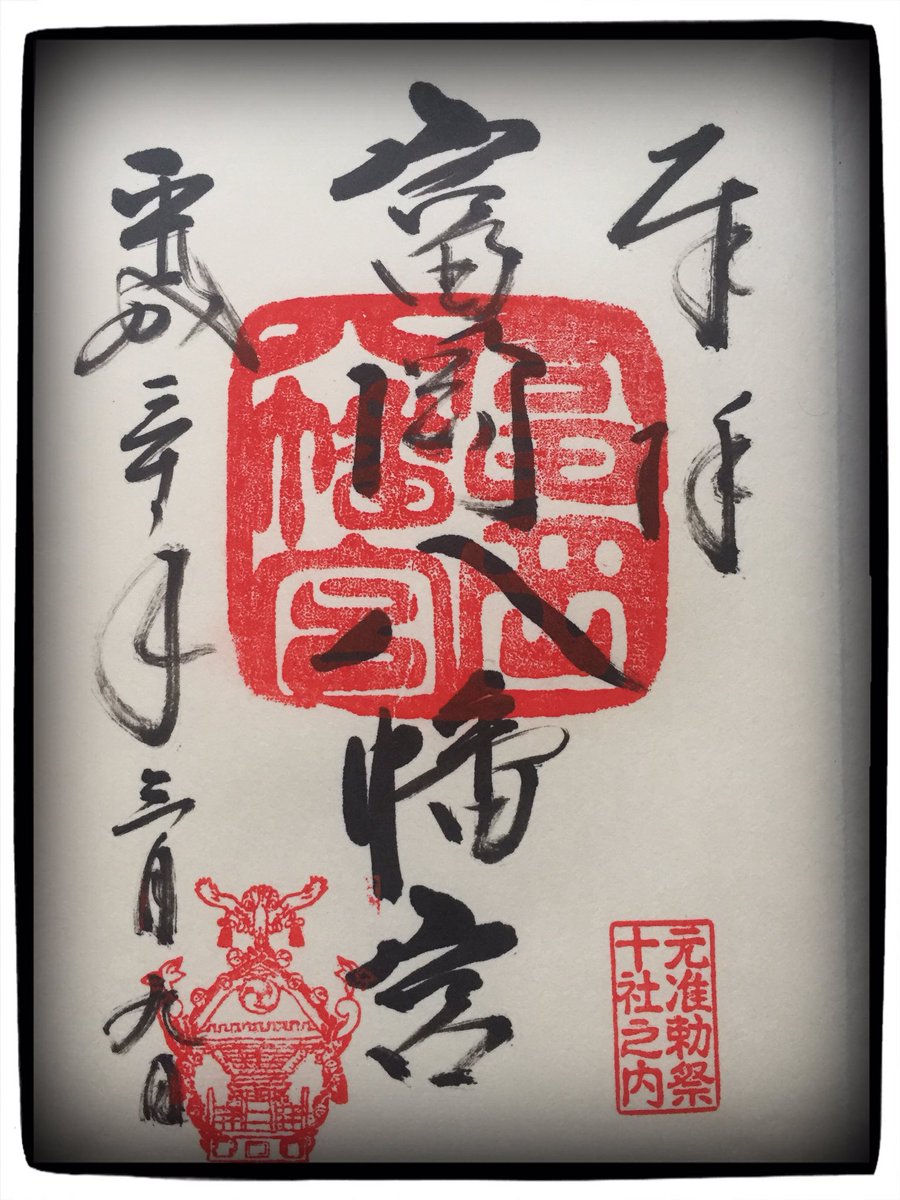 奉拝
元准勅祭
十社之内
富岡八幡宮
富岡
八幡宮
平成三十年三月九日